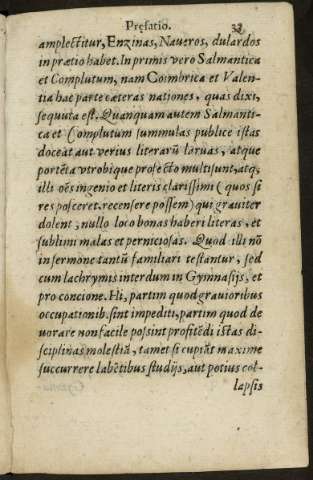 Præfatio. 33
amplectitur, Enzinas, Naueros, dulardos
in prætio habet. In primis vero Salmantica
et Complutum, nam Coimbrica et Valen-
tia hac parte cæteras nationes, quas dixi,
sequuta est. Quanquam autem Salmanti-
ca et Complutum summulas publice istas
doceat aut verius literarū laruas, atque
portēta vtrobique profecto multi sunt, atq,
illi oēs ingenio et literis clarissimi (quos si
res posceret recensere possem) qui grauiter
dolent, nullo loco bonas haberi literas, et
sublimi malas et perniciosas. Quod illi nō
in sermone tantū familiari testantur, sed
cum lachrymis interdum in Gymnasijs, et
pro concione. Hi, partim quod grauioribus
occupationib. sint impediti, partim quod de
uorare non facile possint profitēdi istas di-
sciplinas molestiā, tamet si cupiāt maxime
succurrere labētibus studijs, aut potius col-
lapsis